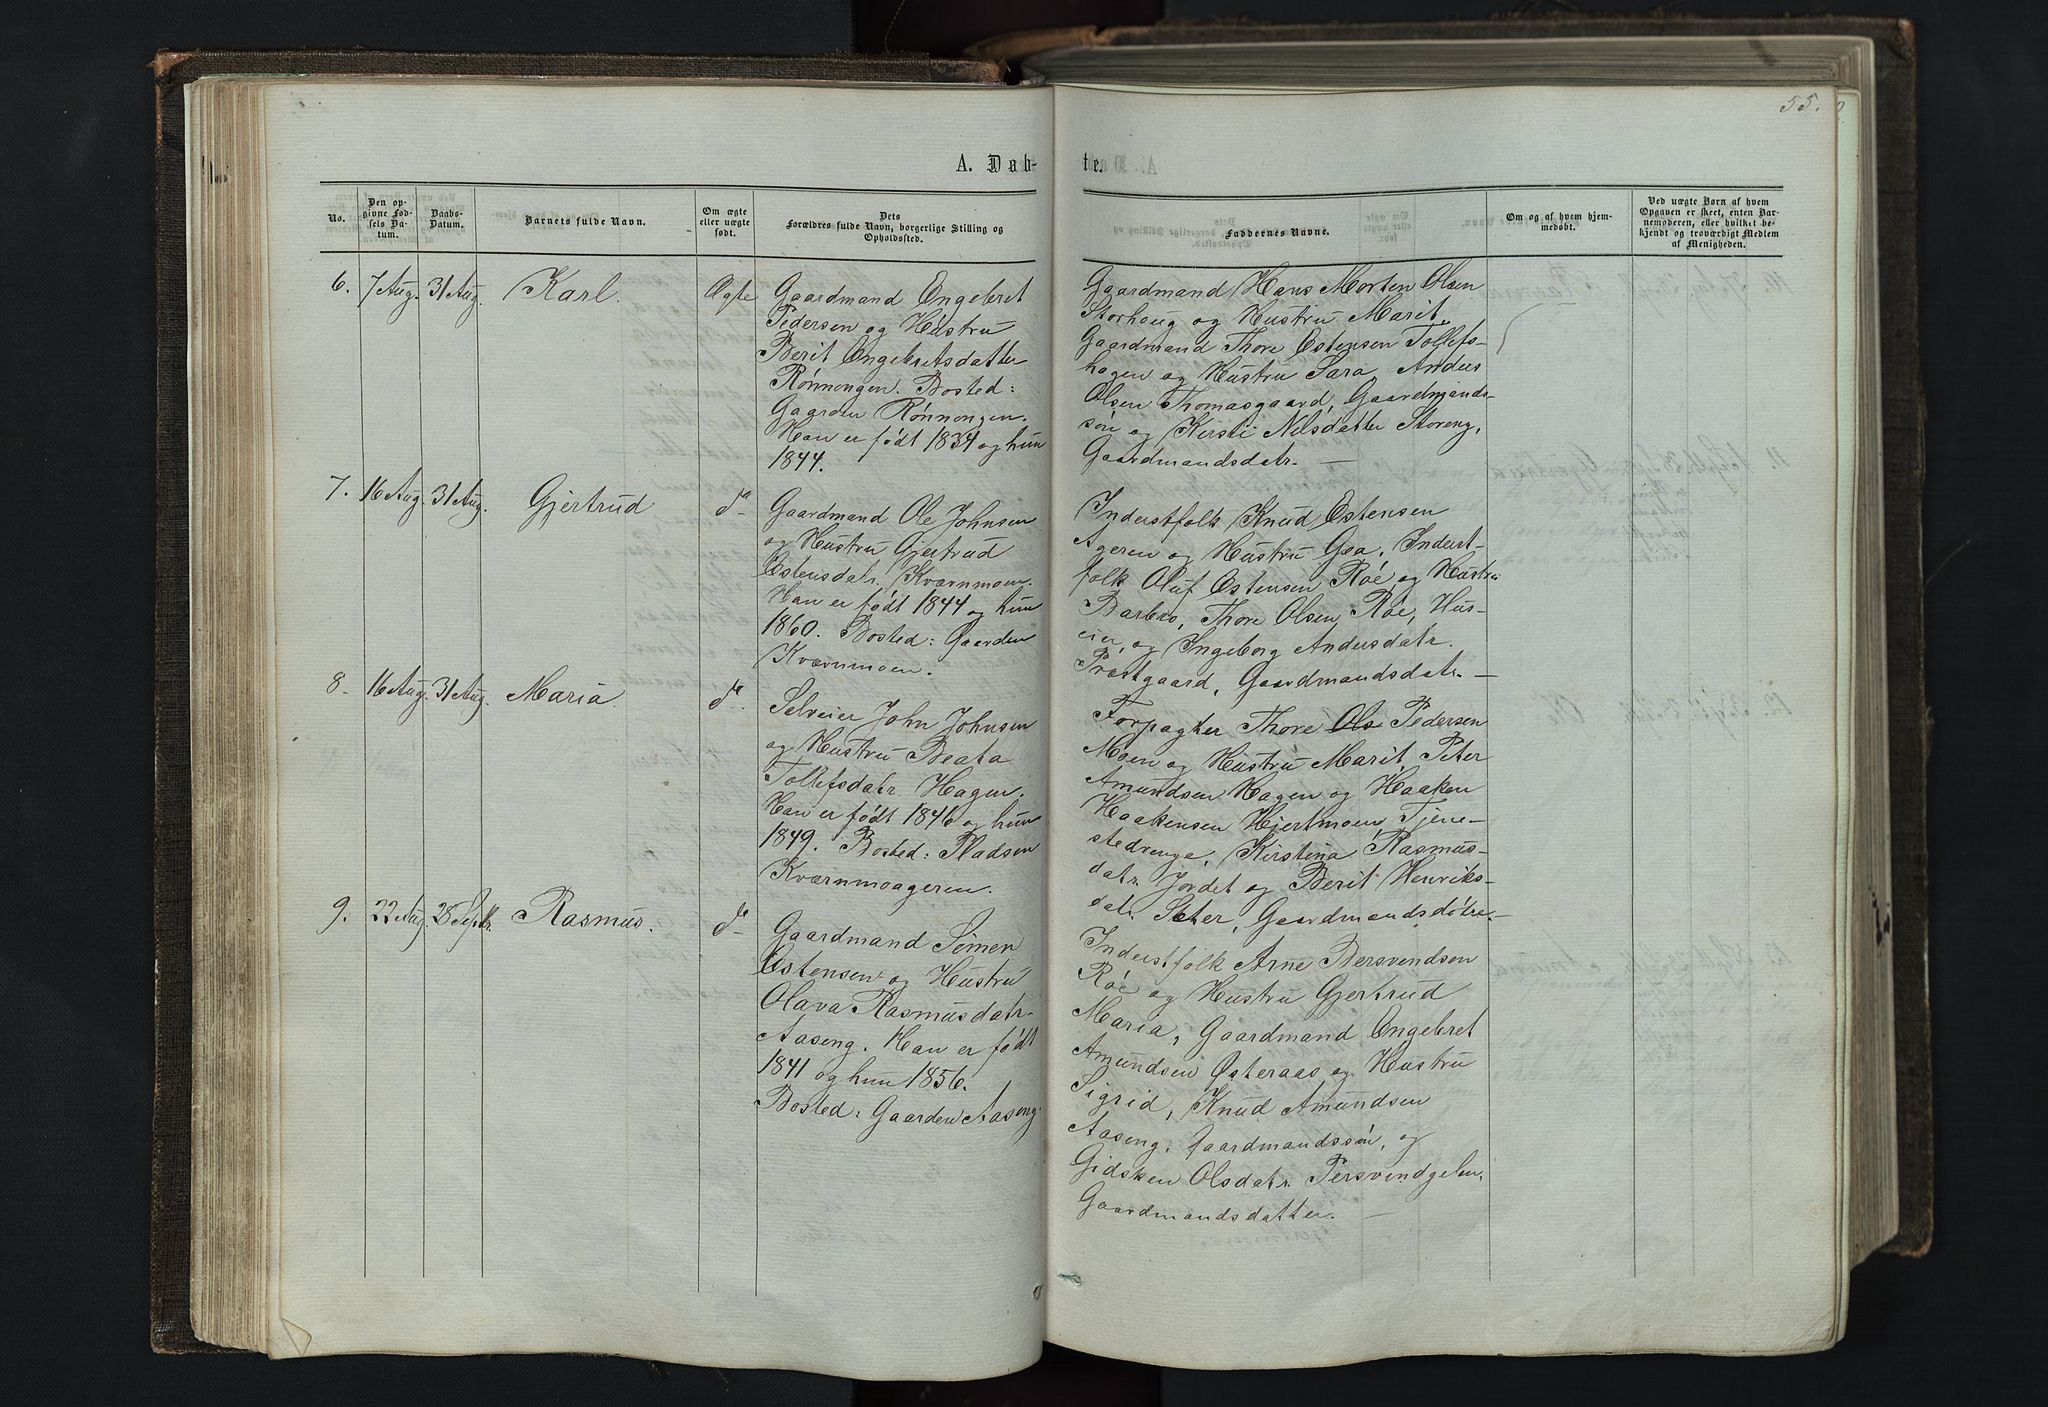 55.
A. Dab-
te.
No.
Den op-
givne Fød-
sels Da-
tum.
Daabs-
Datum.
Barnets fulde Navn.
Om ægte
eller uægte
født.
Dets
Forældres fulde Navn, borgerlige Stilling og
Opholdssted.
Faddernes Navne.
Om og af hvem hjem-
medøbt.
Ved uægte Børn af hvem
Opgaven er skeet, enten Bar-
nemoderen, eller hvilket be-
kjendt og troværdigt Medlem
af Menigheden.
6. 7 Aug. 31 Aug. Karl. Ægte
Gaardmand Engebret
Pedersen og Hustru
Berit Engebretsdatter
Rønnongen. Bosted:
Gaarden Rønnongen.
Han er født 1834 og hun
1844.
Gaardmand Hans Morten Olsen
Storhoug og Hustru Marit,
Gaardmand Thore Estensen Tollefs-
hagen og Hustru Sara, Anders
Olsen Thomasgaard, Gaardmands-
søn og Kirsti Nilsdatter Storeng,
Gaardmandsdatr. —
7. 16 Aug. 31 Aug. Gjertrud do
Gaardmand Ole Johnsen
og Hustru Gjertrud
Estensdatr. Kværnmoen.
Han er født 1844 og hun
1860. Bosted: Gaarden
Kværnmoen.
Inderstfolk Knud Estensen
Ageren og Hustru Gea, Inderst-
folk Oluf Estensen Røe og Hustru
Barbro, Thore Olsen Røe, Hus-
eier, og Ingeborg Andersdatr.
Præstgaard, Gaardmandsdatr. —
8. 16 Aug. 31 Aug. Maria. do
Selveier John Johnsen
og Hustru Beata
Tollefsdatr. Hagen.
Han er født 1846 og hun
1849. Bosted: Pladsen
Kværnmoageren.
Forpagter Thore Ols Pedersen
Moen og Hustru Marit, Peter
Amundsen Hagen og Haaken
Haakensen Hjertmoen, Tjene-
stedrenge, Kirstina Rasmus-
datr. Jordet og Berit Henriks-
datr. Sæter, Gaardmandsdøtre —
9. 22 Aug. 28 Septbr. Rasmus. do
Gaardmand Simen
Estensen og Hustru
Olava Rasmusdatr.
Aaseng. Han er født
1841 og hun 1856.
Bosted: Gaarden Aaseng.
Inderstfolk Arne Bersvendsen
Røe og Hustru Gjertrud
Maria, Gaardmand Engebret
Amundsen Østeraas og Hustru
Sigrid, Knud Amundsen
Aaseng, Gaardmandssøn, og
Gidsken Olsdatr. Persvendgelen,
Gaardmandsdatter. —